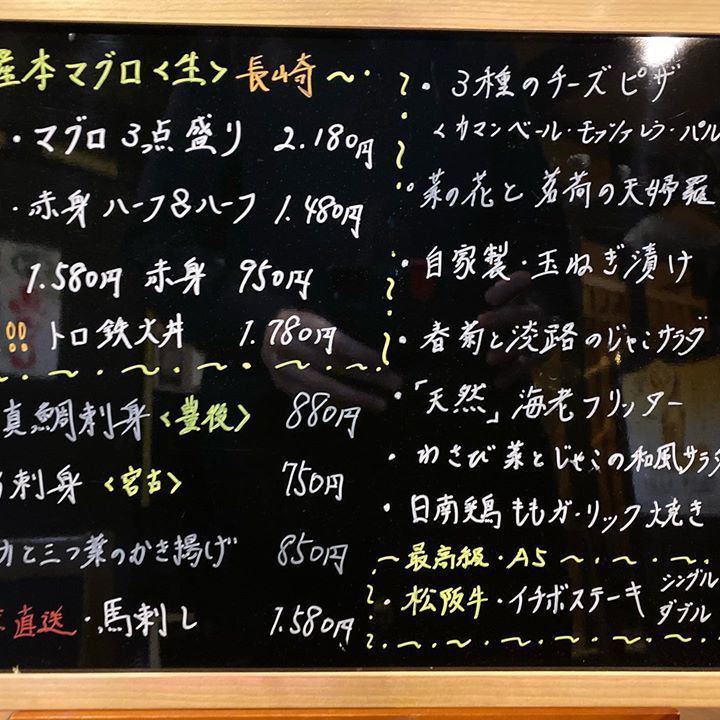 産本マグロ<生>長崎〜・
・マグロ3点盛り 2.180円
・赤身ハーフ&ハーフ 1.480円
1.580円 赤身 950円
!! トロ鉄火丼 1.780円
真鯛刺身<豊後> 880円
刺身<宮古> 750円
と三つ葉のかき揚げ 850円
直送・馬刺し 1.580円
・3種のチーズピザ
<カマンベール・モッツァレラ・パル
・菜の花と茗荷の天婦羅
・自家製・玉ねぎ漬け
・春菊と淡路のじゃこサラダ
・「天然」海老フリッター
・わさび菜とじゃこの和風サラダ
・日南鶏ももガーリック焼き
〜最高級・A5〜
松阪牛・イチボステーキ シングル
ダブル